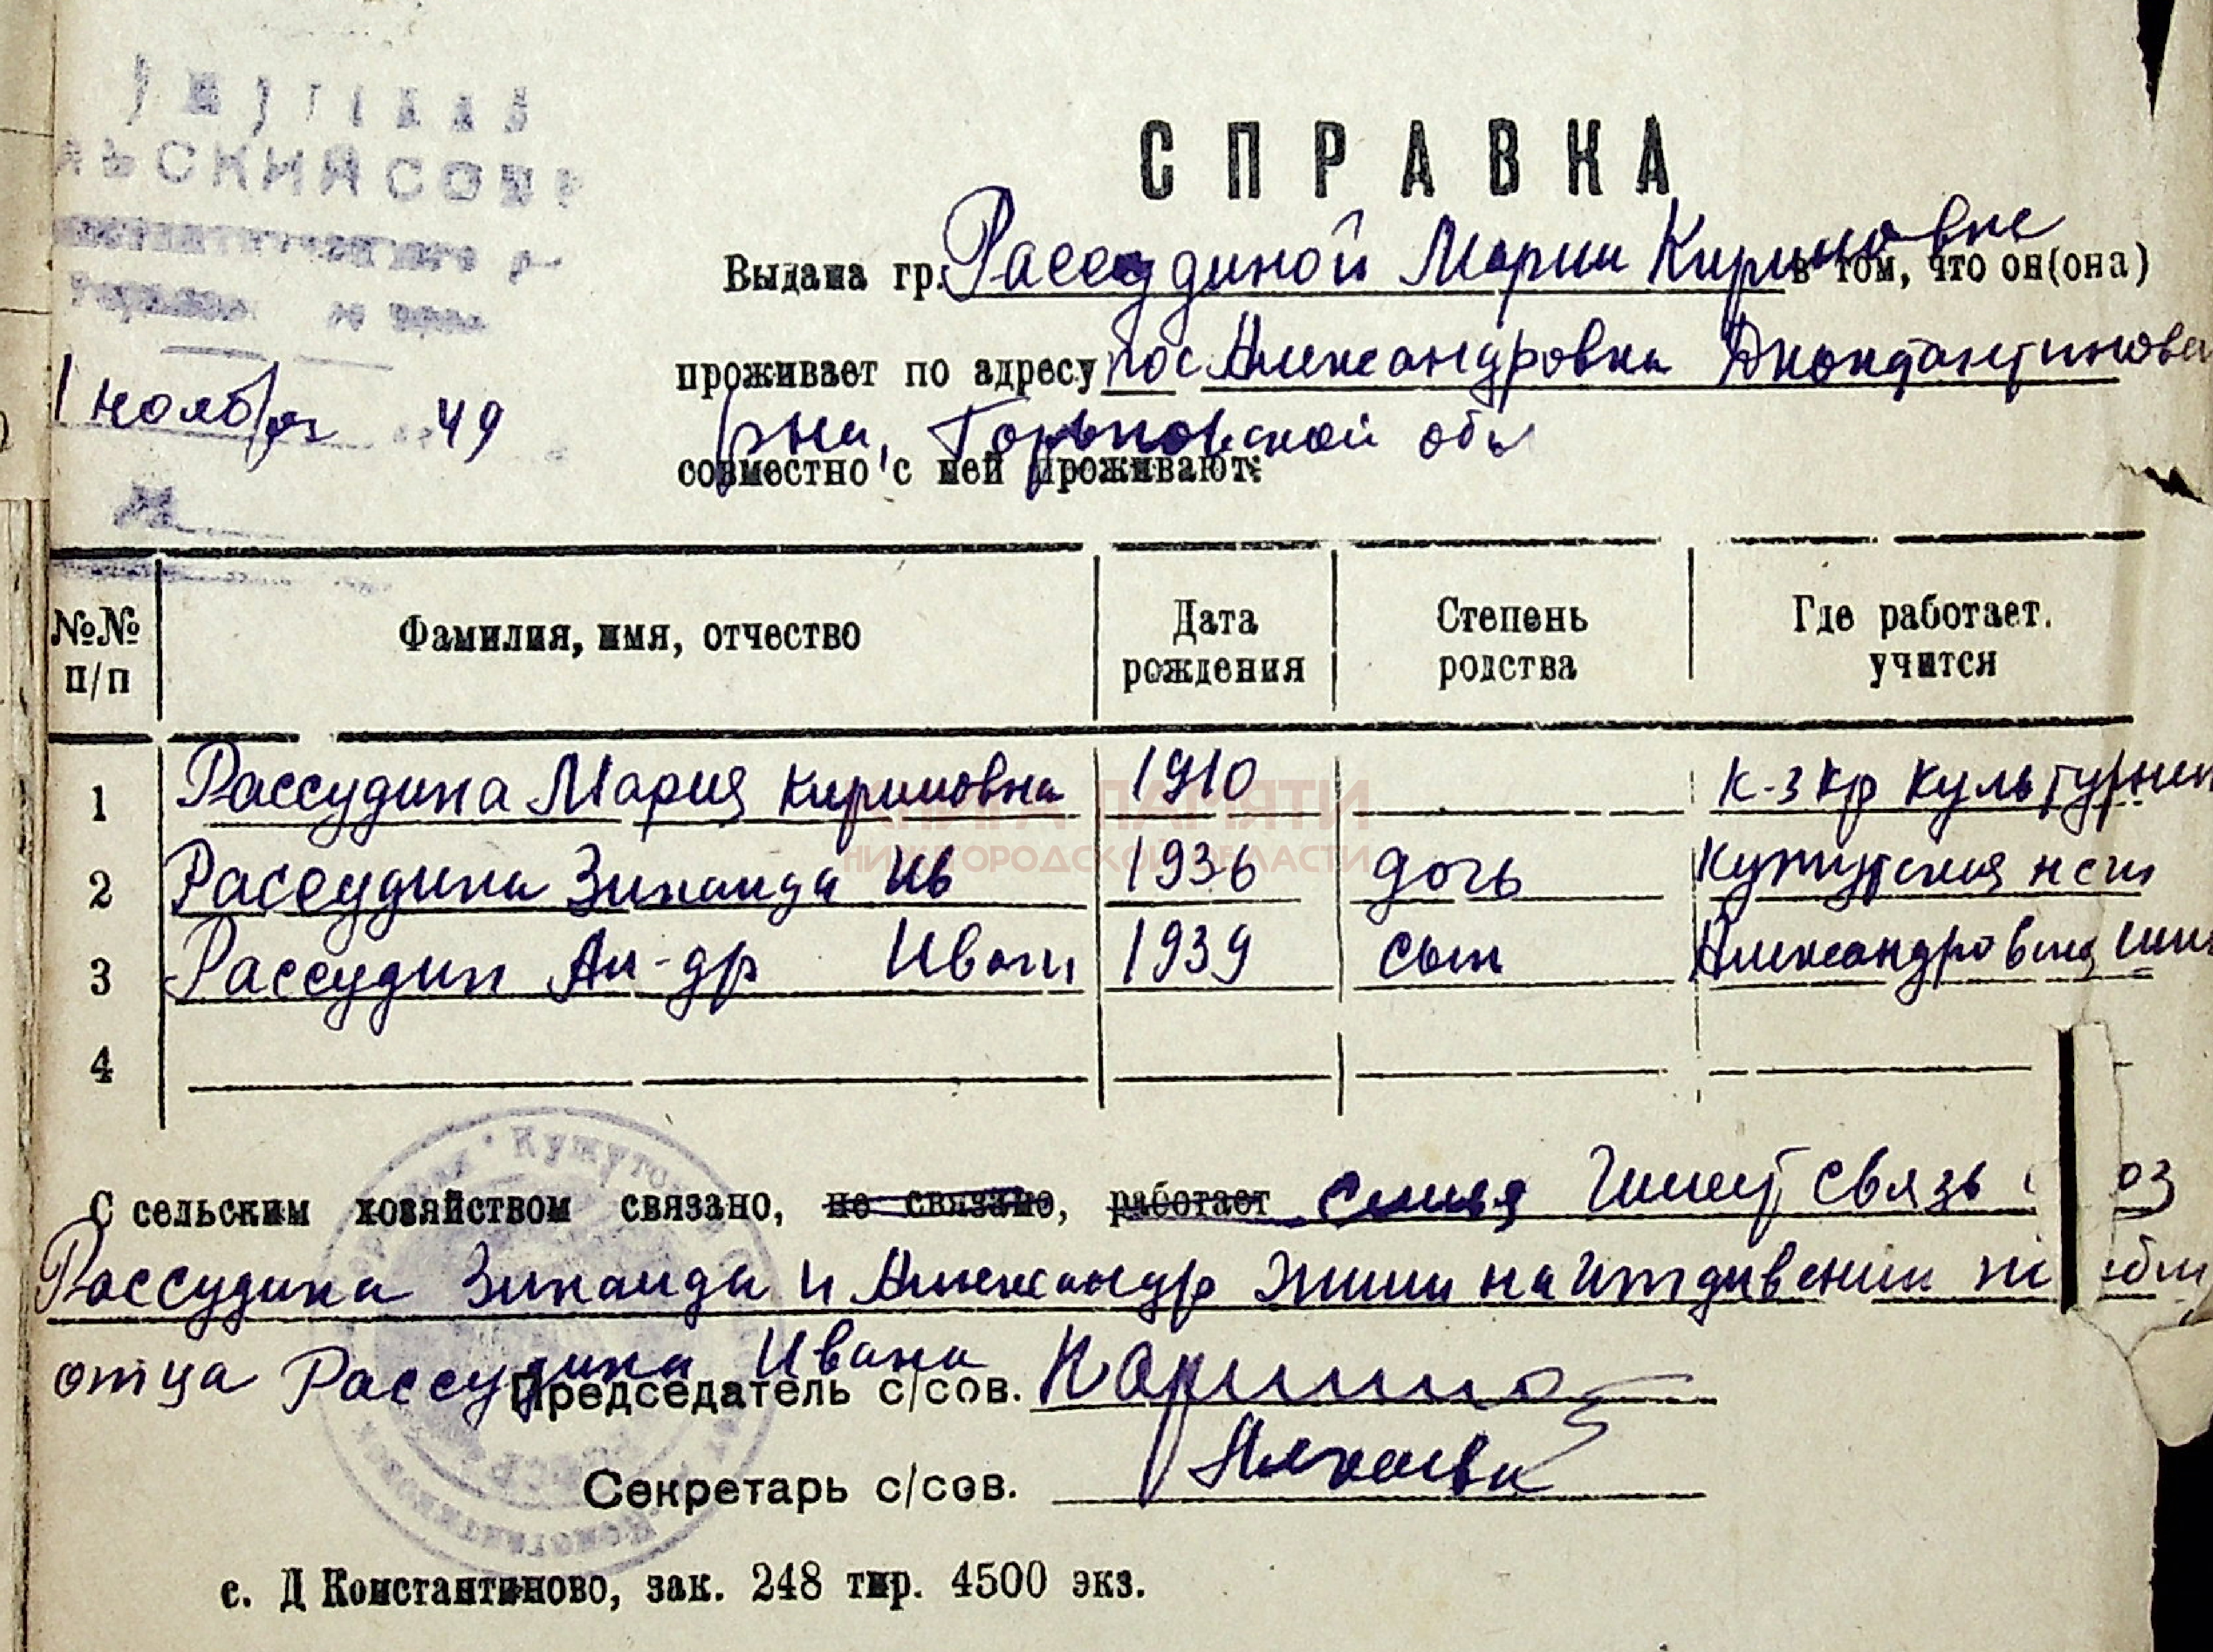 ЛЬСКИЙ СОВЕ
СПРАВКА
Выдана гр. Рассудиной Марии Кириловне в том, что он(она)
проживает по адресу пос Александровка Дконстантинова
рна, Горьковской обл
1 ноября 49
совместно с ней проживают:
№№ п/п Фамилия, имя, отчество Дата рождения Степень родства Где работает. учится
1 Рассудина Мария Кириловна 1910 К-з Кр Культурник
2 Рассудина Зинаида Ив 1936 дочь Кужутская нсш
3 Рассудин Ал-др Иван 1939 сын Александровская
4
КНИГА ПАМЯТИ
НИЖЕГОРОДСКОЙ ОБЛАСТИ
С сельским хозяйством связано, не связано, работает семья имеет связь
Рассудина Зинаида и Александр жили на иждивении
отца Рассудина Ивана
Председатель с/сов.
Секретарь с/сов.
с. Д Константиново, зак. 248 тир. 4500 экз.